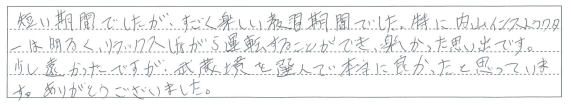 短い期間でしたが、すごく楽しい教習期間でした。特に内山インストラクタ
ーは明るく、リラックスしながら運転することができ、楽しかった思い出です。
少し遠かったですが、武蔵境を選んで本当に良かったと思っていま
す。ありがとうございました。